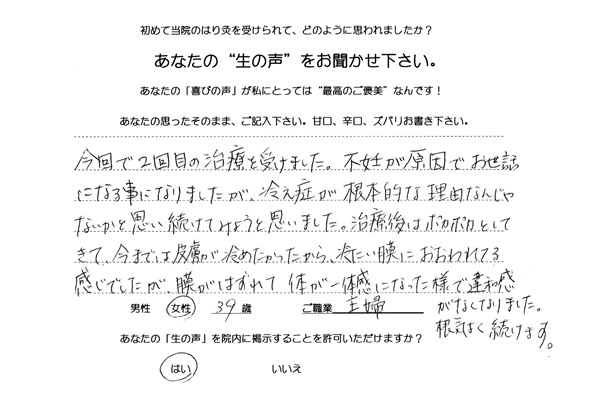 初めて当院のはり灸を受けられて、どのように思われましたか？
あなたの“生の声”をお聞かせ下さい。
あなたの「喜びの声」が私にとっては“最高のご褒美”なんです！
あなたの思ったそのまま、ご記入下さい。甘口、辛口、ズバリお書き下さい。
今回で2回目の治療を受けました。不妊が原因でお世話
になる事になりましたが、冷え症が根本的な理由なんじゃ
ないかと思い続けてみようと思いました。治療後はポカポカとして
きて、今までは皮膚が冷めたかったから、冷たい膜におおわれてる
感じでしたが、膜がはずれて体が一体感になった様で違和感
がなくなりました。
根気よく続けます。
男性 女性 39歳 ご職業 主婦
あなたの「生の声」を院内に掲示することを許可いただけますか？
はい いいえ